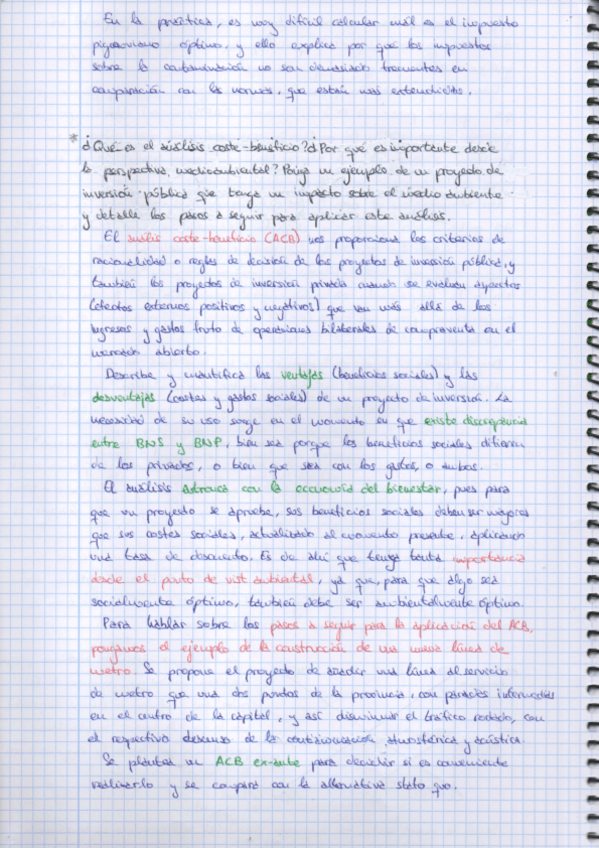 En la práctica, es muy difícil calcular cuál es el impuesto
pigouviano óptimo, y ello explica por qué los impuestos
sobre la contaminación no son demasiado frecuentes en
comparación con las normas, que están más extendidas.
* ¿Qué es el análisis coste-beneficio? ¿Por qué es importante desde
la perspectiva medioambiental? Ponga un ejemplo de un proyecto de
inversión pública que tenga un impacto sobre el medio ambiente
y detalle los pasos a seguir para aplicar este análisis.
El análisis coste-beneficio (ACB) nos proporciona los criterios de
racionalidad o reglas de decisión de los proyectos de inversión pública, y
también los proyectos de inversión privada cuando se evalúan aspectos
(efectos externos positivos y negativos) que van más allá de los
ingresos y gastos fruto de operaciones bilaterales de compraventa en el
mercado abierto.
Describe y cuantifica las ventajas (beneficios sociales) y las
desventajas (costes y gastos sociales) de un proyecto de inversión. La
necesidad de su uso surge en el momento en que existe discrepancia
entre BNS y BNP, bien sea porque los beneficios sociales difieren
de los privados, o bien que sea con los gastos, o ambos.
El análisis entronca con la economía del bienestar, pues para
que un proyecto se apruebe, sus beneficios sociales deben ser mayores
que sus costes sociales, actualizado al momento presente, aplicando
una tasa de descuento. Es de ahí que tenga tanta importancia
desde el punto de vist ambiental, ya que, para que algo sea
socialmente óptimo, también debe ser ambientalmente óptimo.
Para hablar sobre los pasos a seguir para la aplicación del ACB,
pongamos el ejemplo de la construcción de una nueva línea de
metro. Se propone el proyecto de añadir una línea al servicio
de metro que una dos puntos de la provincia, con paradas intermedias
en el centro de la capital, y así disminuir el tráfico rodado, con
el respectivo descenso de la contaminación atmosférica y acústica.
Se plantea un ACB ex-ante para decidir si es conveniente
realizarlo y se compara con la alternativa statu quo.